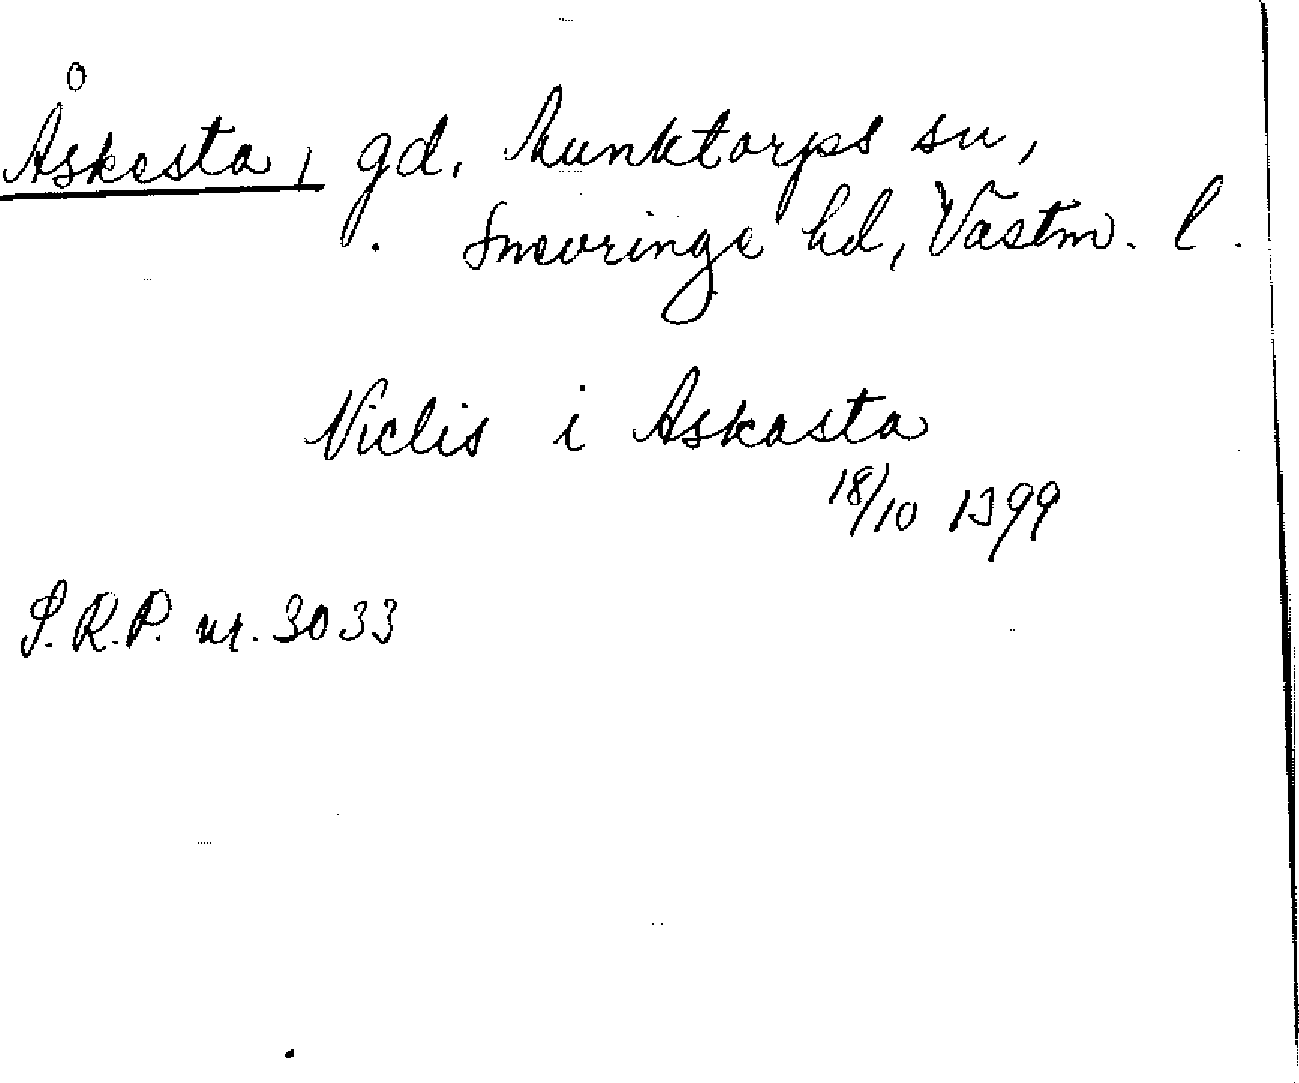 Åskesta, gd. Munktorps sn,
Snevringe hd, Västm. l.
Niclis i Askasta
18/10 1399
S.R.P. nr. 3033